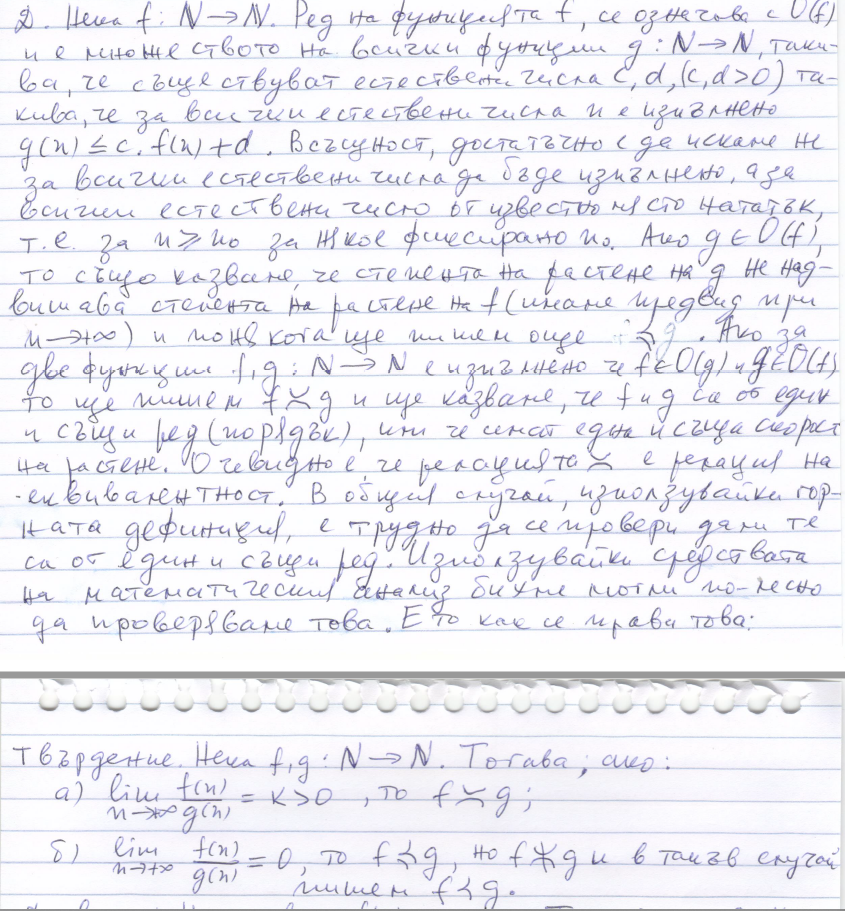 Д. Нека f: N → N. Ред на функцията f, се означава с O(f)
и е множеството на всички функции g: N → N, таки-
ва, че съществуват естествени числа c, d, (c, d > 0) та-
кива, че за всички естествени числа n е изпълнено
g(n) ≤ c. f(n) + d. Всъщност, достатъчно е да искаме не
за всички естествени числа да бъде изпълнено, а за
всички естествени число от известно място нататък,
т.е. за n ≥ n₀ за някое фиксирано n₀. Ако g ∈ O(f),
то също казваме, че степента на растене на g не над-
вишава степента на растене на f (имаме предвид при
n → +∞) и понякога ще пишем още ≼ g. Ако за
две функции f, g: N → N е изпълнено че f ∈ O(g) и g ∈ O(f)
то ще пишем f ≍ g и ще казваме, че f и g са от един
и същи ред (порядък), или че имат една и съща скорост
на растене. Очевидно е, че релацията ≍ е релация на
еквивалентност. В общия случай, използувайки гор-
ната дефиниция, е трудно да се провери дали те
са от един и същи ред. Използувайки средствата
на математическия анализ бихме могли по-лесно
да проверяваме това. Ето как се прави това:
Твърдение. Нека f, g: N → N. Тогава; ако:
а) lim n→+∞ f(n)/g(n) = K > 0, то f ≍ g;
б) lim n→+∞ f(n)/g(n) = 0, то f ≼ g, но f ≭ g и в такъв случай
пишем f ≺ g.